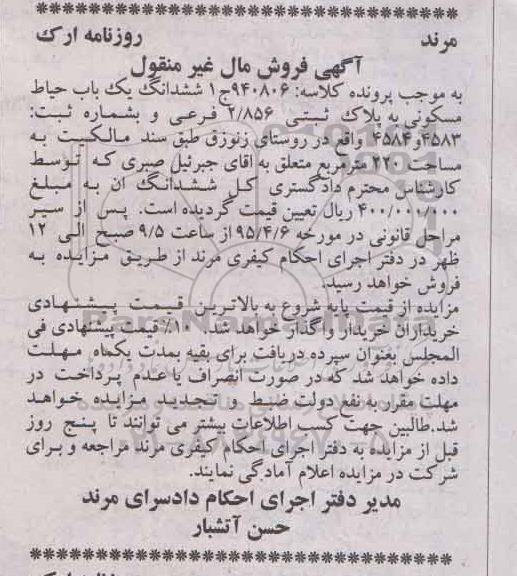 مرند روزنامه ارک
آگهی فروش مال غیر منقول
به موجب پرونده کلاسه: ۹۴۰۸۰۶ج۱ ششدانگ یک باب حیاط
مسکونی به پلاک ثبتی ۲/۸۵۶ فرعی و بشماره ثبت:
۴۵۸۳و۴۵۸۴ واقع در روستای زنوزق طبق سند مالکیت به
مساحت ۲۲۰ مترمربع متعلق به اقای جبرئیل صبری که توسط
کارشناس محترم دادگستری کل ششدانگ ان به مبلغ
۴۰۰/۰۰۰/۰۰۰ ریال تعیین قیمت گردیده است. پس از سیر
مراحل قانونی در مورخه ۹۵/۴/۶ از ساعت ۹/۵ صبح الی ۱۲
ظهر در دفتر اجرای احکام کیفری مرند از طریق مزایده به
فروش خواهد رسید.
مزایده از قیمت پایه شروع به بالاترین قیمت پیشنهادی
خریداران خریدار واگذار خواهد شد. ۱۰٪ قیمت پیشنهادی فی
المجلس بعنوان سپرده دریافت برای بقیه بمدت یکماه مهلت
داده خواهد شد که در صورت انصراف یا عدم پرداخت در
مهلت مقرار به نفع دولت ضبط و تجدید مزایده خواهد
شد.طالبین جهت کسب اطلاعات بیشتر می توانند تا پنج روز
قبل از مزایده به دفتر اجرای احکام کیفری مرند مراجعه و برای
شرکت در مزایده اعلام آمادگی نمایند.
مدیر دفتر اجرای احکام دادسرای مرند
حسن آتشبار